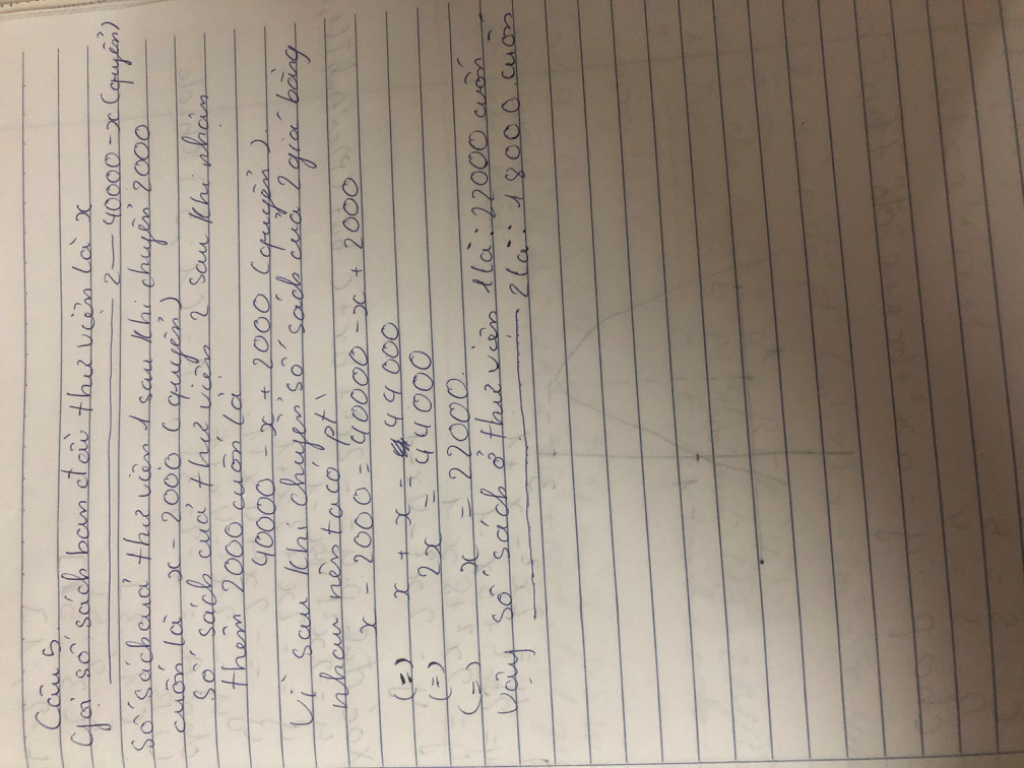 Câu 5
Gọi số sách ban đầu thư viện là x
__________ 2 _ 40000 - x (quyển)
Số sách của thư viện 1 sau khi chuyển 2000
cuốn là x - 2000 (quyển)
Số sách của thư viện 2 sau khi nhận
thêm 2000 cuốn là
40000 - x + 2000 (quyển)
Vì sau khi chuyển số sách của 2 giá bằng
nhau nên ta có pt
x - 2000 = 40000 - x + 2000
(=) x + x = 44000
(=) 2x = 44000
(=) x = 22000.
Vậy số sách ở thư viện 1 là : 22000 cuốn
__________ 2 là : 18000 cuốn